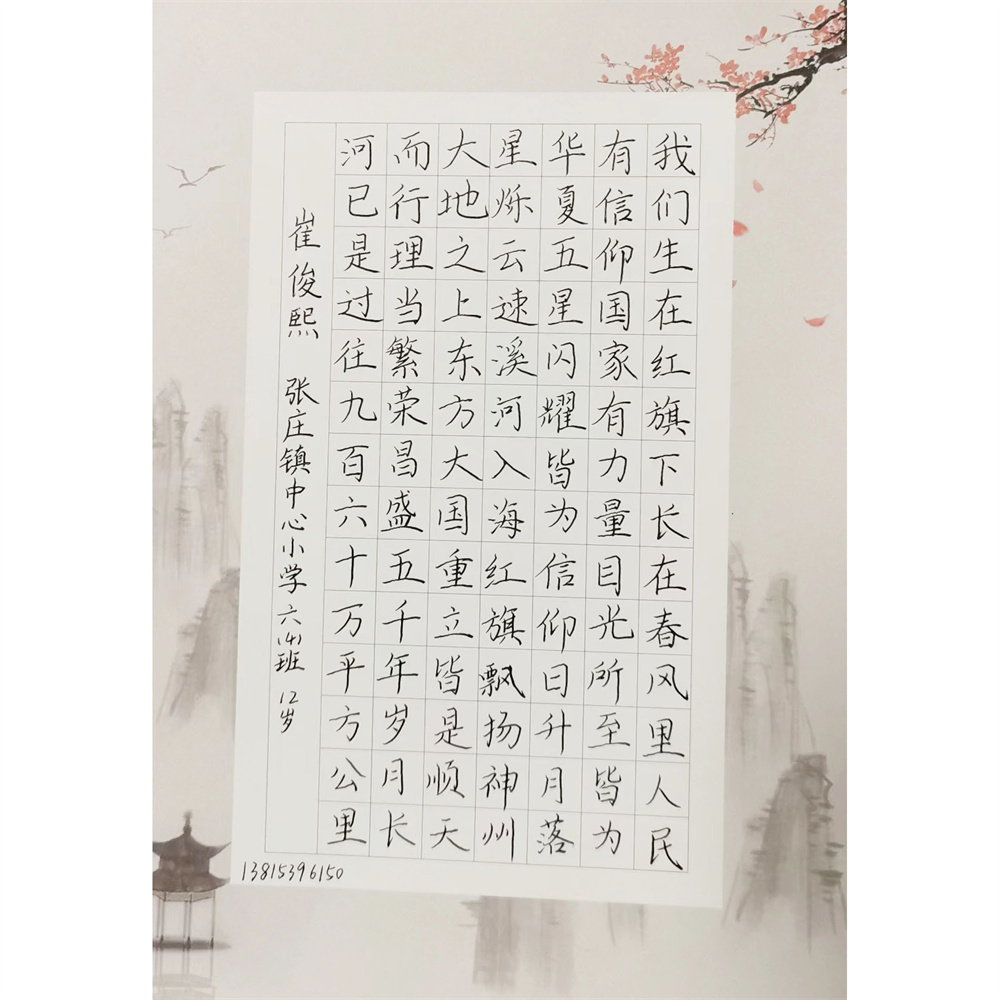 我们生在红旗下长在春风里人民
有信仰国家有力量目光所至皆为
华夏五星闪耀皆为信仰日升月落
星烁云速溪河入海红旗飘扬神州
大地之上东方大国重立皆是顺天
而行理当繁荣昌盛五千年岁月长
河已是过往九百六十万平方公里
崔俊熙 张庄镇中心小学六(4)班 12岁
13815396150